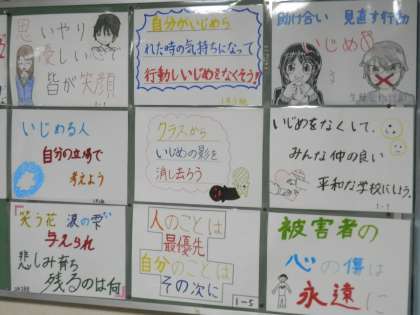 思いやり
優しい心で
皆が笑顔
自分がいじめら
れた時の気持ちになって
行動しいじめをなくそう!
助け合い 見直す行動
いじめ
いじめる人
自分の立場で
考えよう
クラスから
いじめの影を
消し去ろう
いじめをなくして、
みんな仲の良い
平和な学校にしよう。
1-1
「笑う花 涙の雫」
与えられ
悲しみ育ち
残るのは何
人のことは
最優先
自分のことは
その次に
1-5
被害者の
心の傷は
永遠に